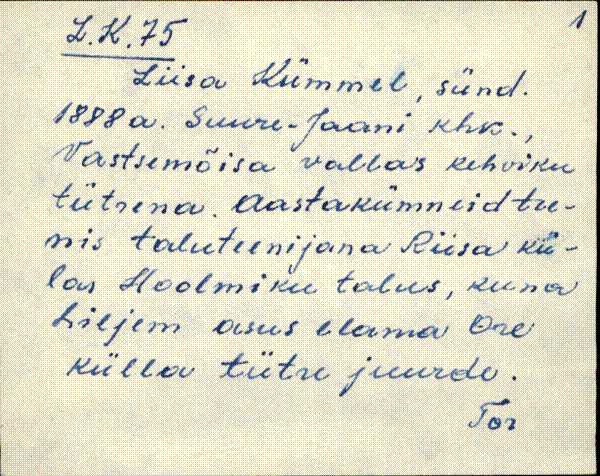 1
L.K.75
Liisa Kümmel, sünd.
1888a. Suure-Jaani khk.,
Vastsemõisa vallas kehviku
tütrena. Aastakümneid tee-
nis taluteenijana Riisa kü-
las Hoolmiku talus, kuna
hiljem asus elama Ore
külla tütre juurde.
Tor